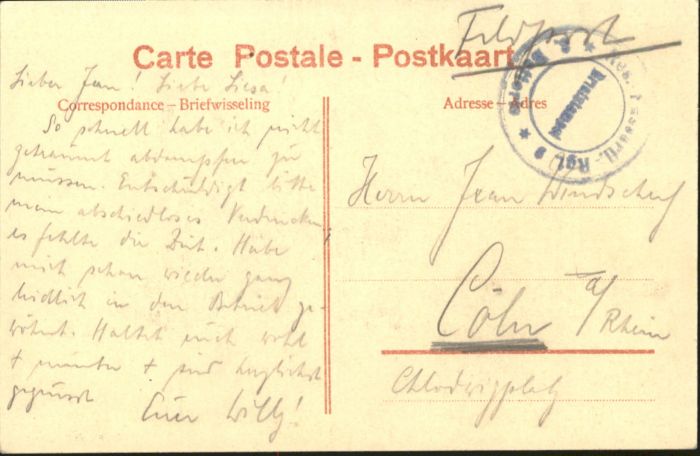 Feldpost
Carte Postale - Postkaart
Lieber Jean! Liebe Liesa!
Correspondance – Briefwisseling
Adresse – Adres
So schnell habe ich nicht
geträumt abdampfen zu
müssen. Entschuldigt bitte
mein abschiedloses Verdrücken,
es fehlte die Zeit. Habe
mich schon wieder ganz
in den Betrieb ge-
wöhnt. Haltet euch wohl
+ munter + seid herzlichst
gegrüsst
Euer Willy!
Herrn Jean Windscheif
Cöln a/
Rhein
Chlodwigplatz
Rgt. 9
2. Batterie